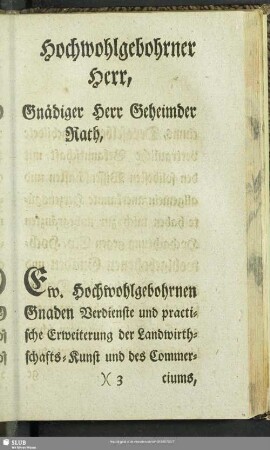 Hochwohlgebohrner
Herr,
Gnädiger Herr Geheimder
Rath,
Ew. Hochwohlgebohrnen
Gnaden Verdienste und practi-
sche Erweiterung der Landwirth-
schafts-Kunst und des Commer-
)( 3 ciums,
SLUB